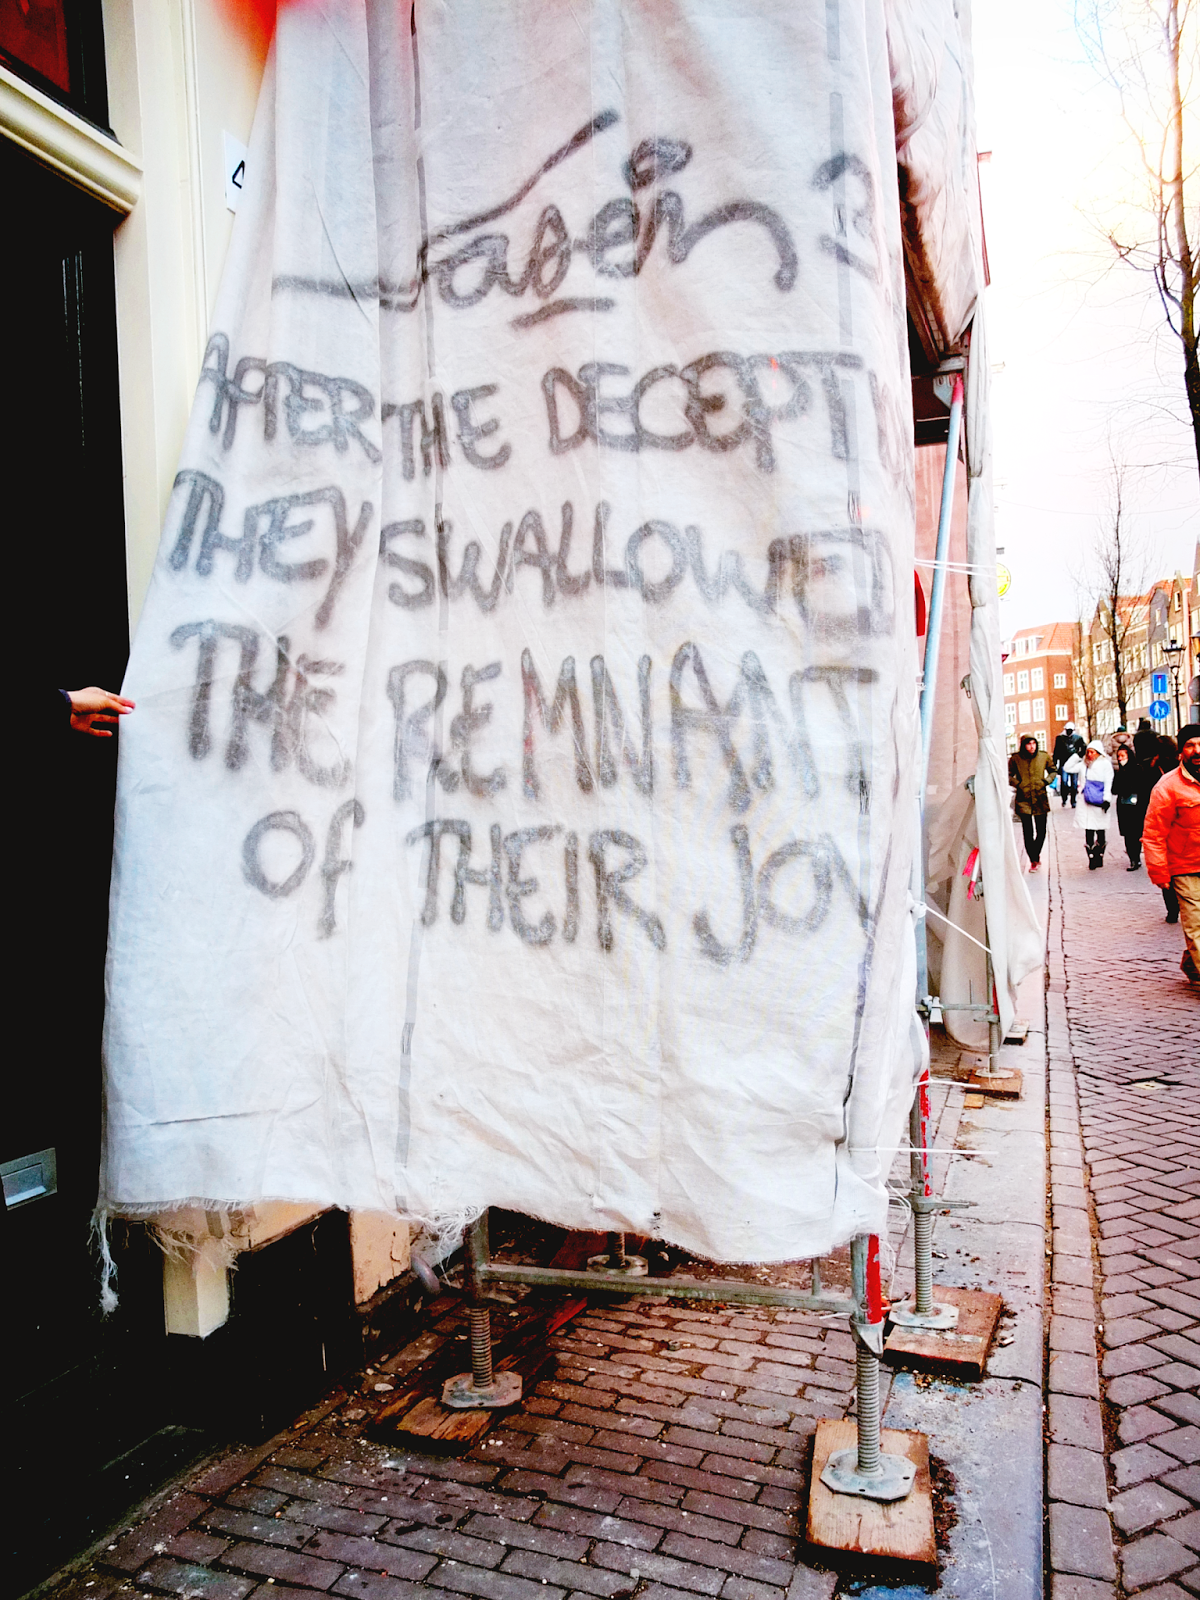 Laser 3
AFTER THE DECEPTI
THEY SWALLOWED
THE REMNANT
Of THEIR JOY